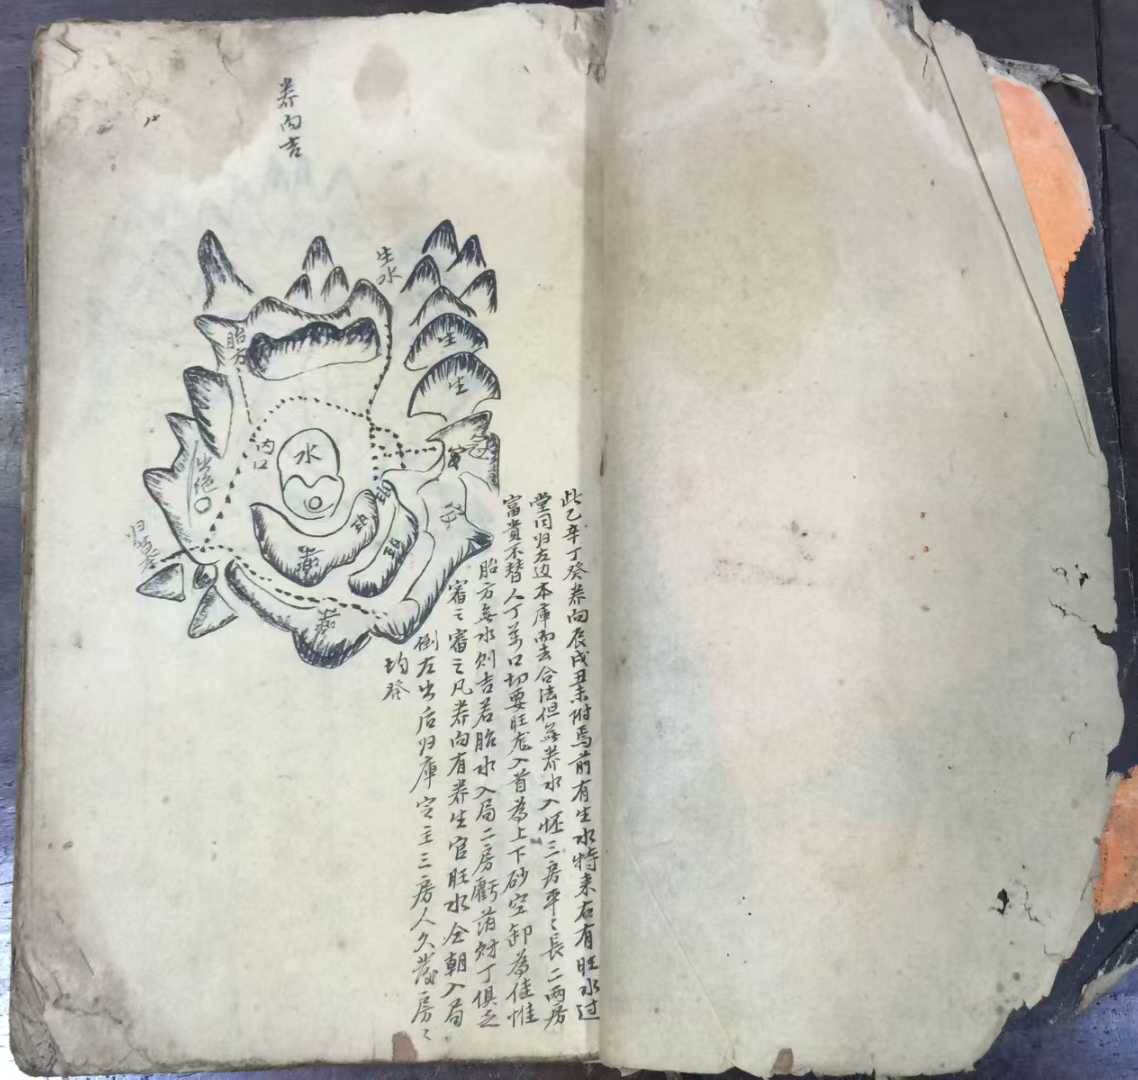 养向吉
生水
胎方
生
生
水
内口
出绝
归
此乙辛丁癸养向辰戌丑未附焉前有生水特来右有旺水过
堂同归左边本庫而去合法但無养水入怀三房平〻長二两房
富貴不替人丁万口切要旺龙入首為上下砂空卸為佳惟
胎方無水则吉若胎水入局二房虧荡财丁俱乏
審之審之凡养向有养生官旺水仝朝入局
倒左出后归庫定主三房人久發房〻
均發